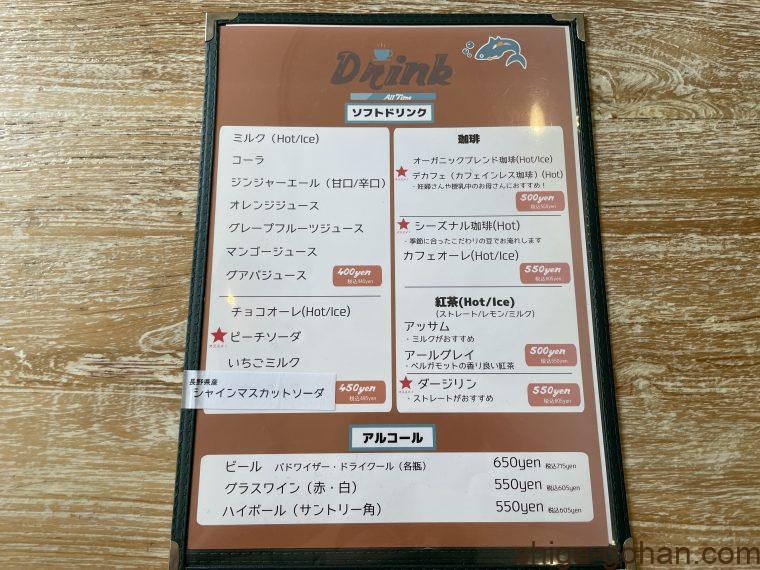 Drink
All Time
ソフトドリンク
ミルク (Hot/Ice)
コーラ
ジンジャーエール（甘口/辛口）
オレンジジュース
グレープフルーツジュース
マンゴージュース
グアバジュース
400yen
税込440yen
チョコオーレ(Hot/Ice)
ピーチソーダ
いちごミルク
長野県産
シャインマスカットソーダ
450yen
税込495yen
珈琲
オーガニックブレンド珈琲(Hot/Ice)
デカフェ（カフェインレス珈琲）(Hot)
・妊婦さんや授乳中のお母さんにおすすめ！
500yen
税込550yen
シーズナル珈琲(Hot)
・季節に合ったこだわりの豆でお淹れします
カフェオーレ(Hot/Ice)
550yen
税込605yen
紅茶(Hot/Ice)
(ストレート/レモン/ミルク)
アッサム
・ミルクがおすすめ
アールグレイ
・ベルガモットの香り良い紅茶
500yen
税込550yen
ダージリン
・ストレートがおすすめ
550yen
税込605yen
アルコール
ビール バドワイザー・ドライクール（各瓶） 650yen 税込715yen
グラスワイン（赤・白） 550yen 税込605yen
ハイボール（サントリー角） 550yen 税込605yen